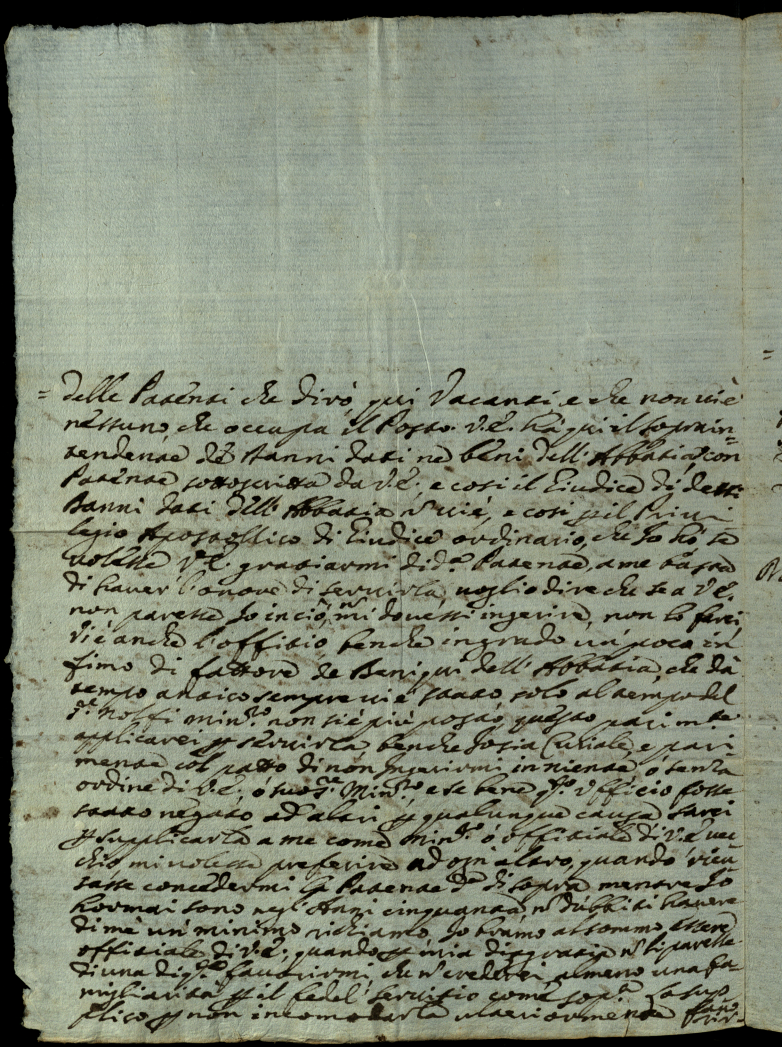 = delle Patenti che dirò, qui Vacanti e che non vi è
nessuno che occupa il Posto. V.E. hà qui il soprain=
tendente de Danni dati ne beni dell' Abbatia, con
Patente sottoscritta da V.E., e così il Giudice di detti
Danni dati dell' Abbatia n' vi è, e così p il Privi
legio Apostollico di Giudice ordinario, che Io hò se
volesse V.E. gratiarmi di d.ª Patente, a me basta
di haver l'onore di servirla, voglio dire che se a V.E.
non paresse Io in ciò, n' mi dovessi ingerire, non lo farei,
Vi è anche l'offitio benche in grado un poco in
fimo di fattore de Beni qui dell' Abbatia, che da
tempo antico sempre vi è stato, solo al tempo del
S.r Nolfi Min.ro non si è più posto, questo parim.te
applicarei p servirla benche Io sia Curiale, e pari
mente col patto di non Ingerirmi in niente ò senza
ordine di V.E., ò suo S.r Min.ro, e se bene q.to Ufficio fosse
stato negato ad altri p qualunque causa sarei
p supplicarla a me come Min.ro ò offitiale di V.E. vec
chio mi volesse preferire ad ogni altro, quando ricu
sasse concedermi la Patente d.ª di sopra mentre Io
hormai sono negl' Anni cinquanta, n' dubbiti havere
di me un minimo richiamo. Io bramo al sommo essere
offitiale di V.E., quando p mia disgratia n' li paresse
di una di q.te favorirmi, che n' crederei almeno una fa=
migliarità p il fedel' servitio come sop.ª La sup
plico p non incomodarla ulteriormente